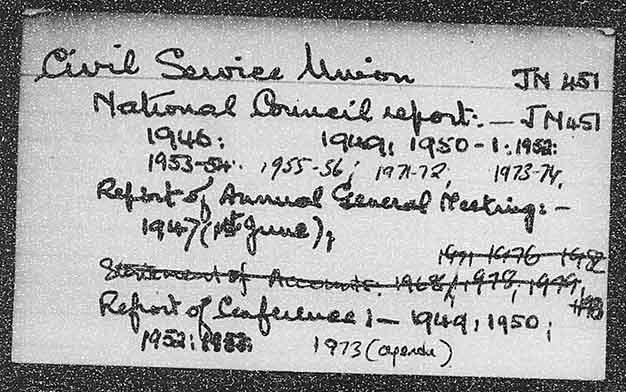 Civil Service Union JN 451
National Council report:— JN451
1946: 1949, 1950-1: 1952:
1953-54: 1955-56; 1971-72; 1973-74,
Report of Annual General Meeting:—
1947 (1st June);
Statement of Accounts. 1968/, 1978, 1979,
Report of Conference:— 1949, 1950;
1952: 1973 (agenda)